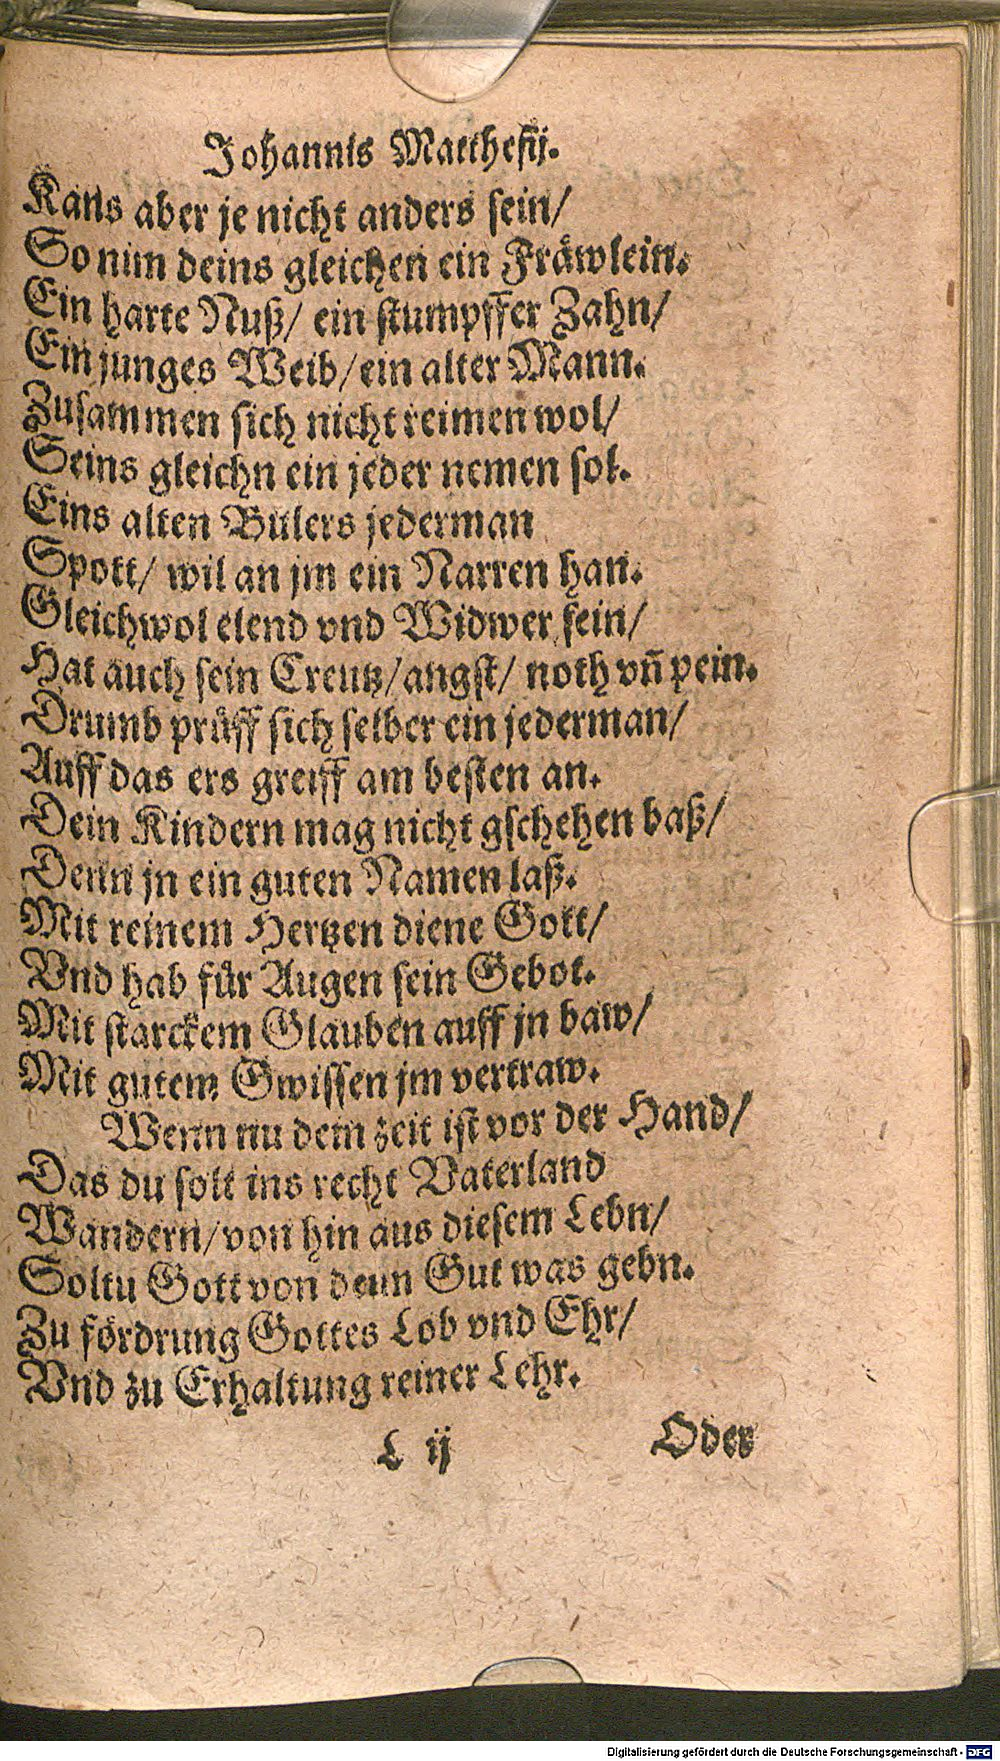 Johannis Matthesij.
Kans aber je nicht anders sein/
So nim deins gleichen ein Fräwlein.
Ein harte Nuß/ ein stumpffer Zahn/
Ein junges Weib/ ein alter Mann.
Zusammen sich nicht reimen wol/
Seins gleichn ein jeder nemen sol.
Eins alten Bulers jederman
Spott/ wil an jm ein Narren han.
Gleichwol elend vnd Widwer sein/
Hat auch sein Creutz/ angst/ noth vñ pein.
Drumb prüff sich selber ein jederman/
Auff das ers greiff am besten an.
Dein Kindern mag nicht gschehen baß/
Denn jn ein guten Namen laß.
Mit reinem Hertzen diene Gott/
Vnd hab für Augen sein Gebot.
Mit starckem Glauben auff jn baw/
Mit gutem Gwissen jm vertraw.
Wenn nu dem zeit ist vor der Hand/
Das du solt ins recht Vaterland
Wandern/ von hin aus diesem Lebn/
Soltu Gott von deim Gut was gebn.
Zu fördrung Gottes Lob vnd Ehr/
Vnd zu Erhaltung reiner Lehr.
L ij
Oder
Digitalisierung gefördert durch die Deutsche Forschungsgemeinschaft - DFG